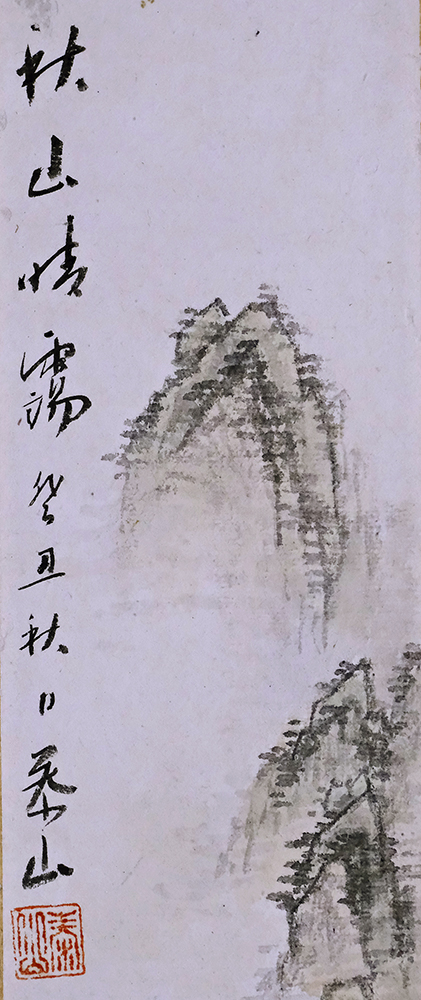 秋山晴靄癸丑秋日山